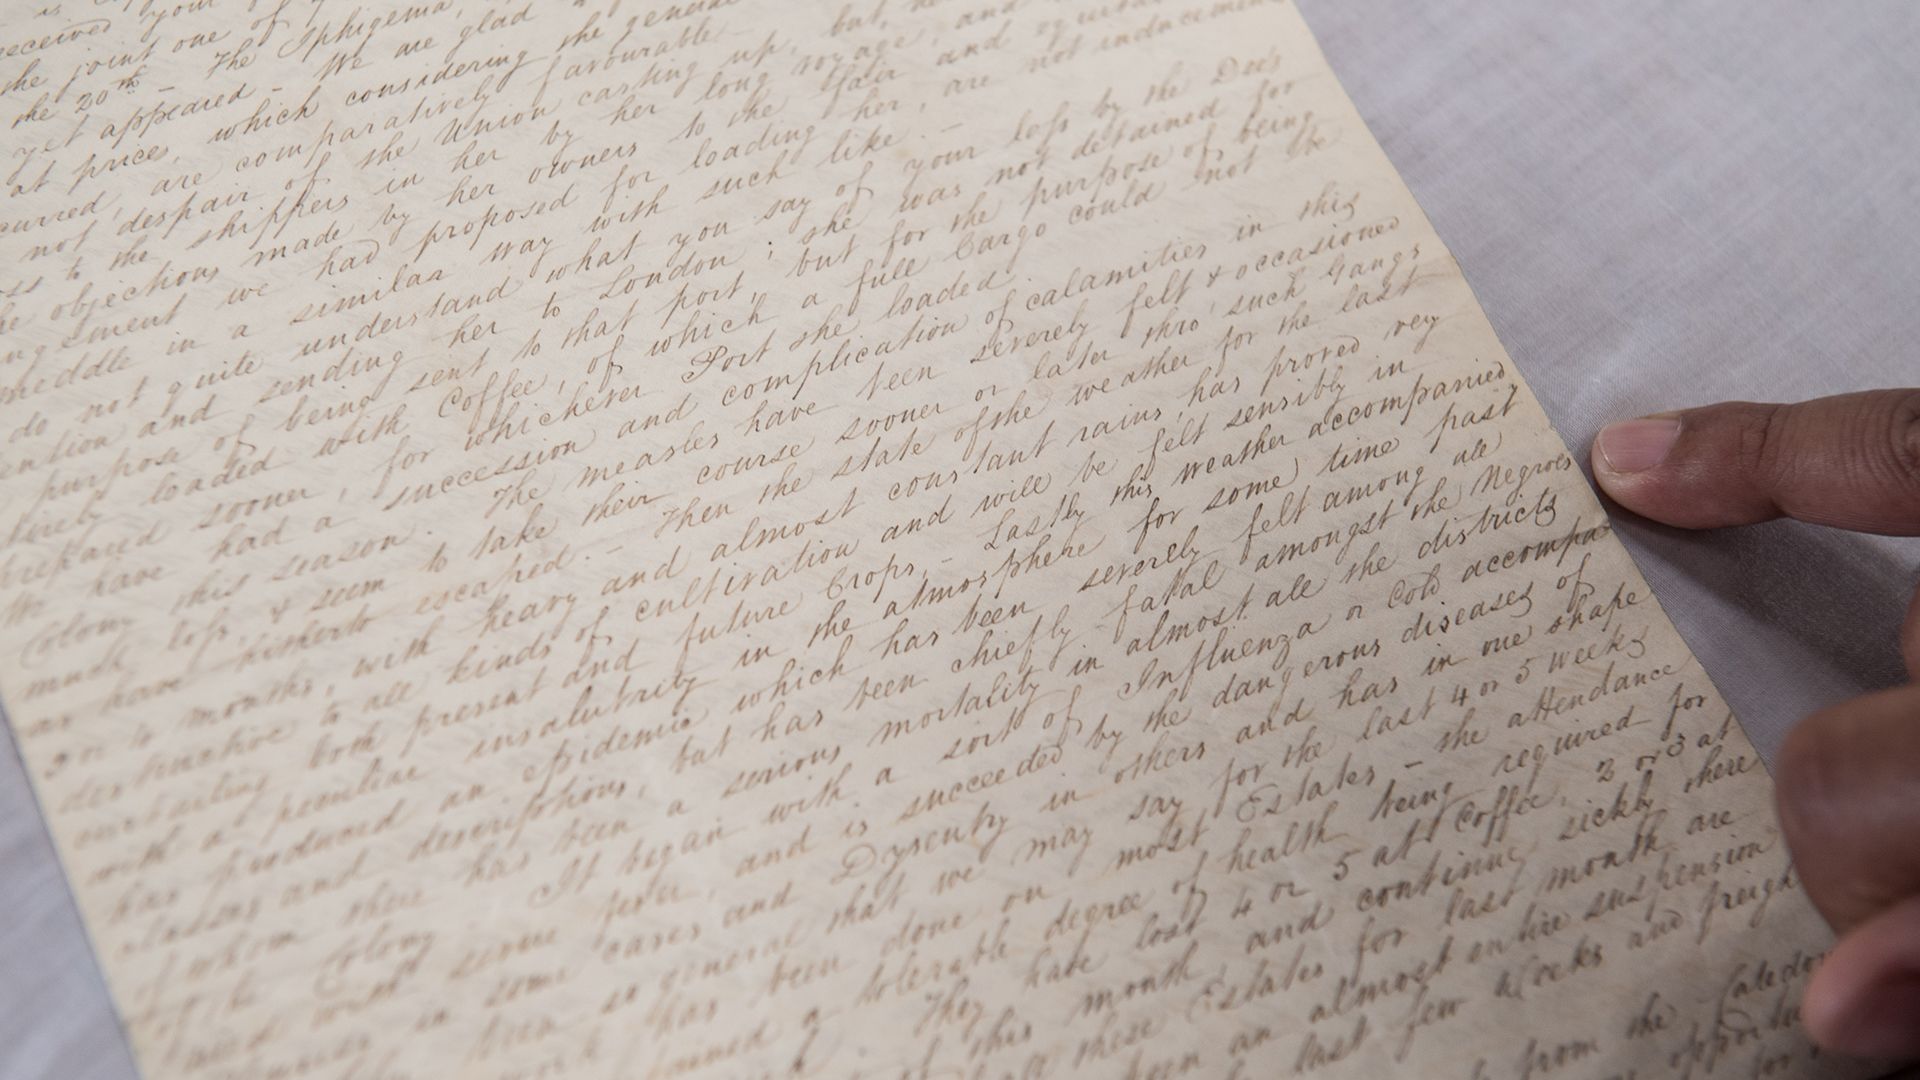 received your
the joint one of
the 20th - The Iphigenia,
yet appeared - We are glad
at prices, which considering the general
curred, are comparatively favourable
not despair of the Union casting up, but,
to the shippers in her by her long voyage, and
he objections made by her owners to the fair and
we had proposed for loading her, are not inducement
meddle in a similar way with such like. -
do not quite understand what you say of your loss by the Dee's
ention and sending her to London; she was not detained for
purpose of being sent to that port, but for the purpose of being
loaded with Coffee, of which a full Cargo could not be
prepared sooner, for whichever Port she loaded
We have had a succession and complication of calamities in this
Colony this season. The measles have been severely felt & occasioned
much loss, & seem to take their course sooner or later thro' such Gangs
as have hitherto escaped. - Then the state of the weather for the last
3 or 4 months, with heavy and almost constant rains, has proved very
destructive to all kinds of cultivation and will be felt sensibly in
both present and future Crops. - Lastly this weather accompanied
with a peculiar insalubrity in the atmosphere for some time past
has produced an epidemic which has been severely felt among all
classes and descriptions, but has been chiefly fatal amongst the Negroes
of whom there has been a serious mortality in almost all the districts
of the Colony. It began with a sort of Influenza or Cold accompa-
nied with some fever, and is succeeded by the dangerous diseases of
in some cases and Dysentry in others and has in one shape
been so general that we may say for the last 4 or 5 weeks
work has been done on most Estates - the attendance
a tolerable degree of health being required for
They have lost 4 or 5 at Coffee, 2 or 3 at
of this month and continue sickly there
all these Estates for last month are
been an almost entire suspension
last few weeks and freight
from the
for